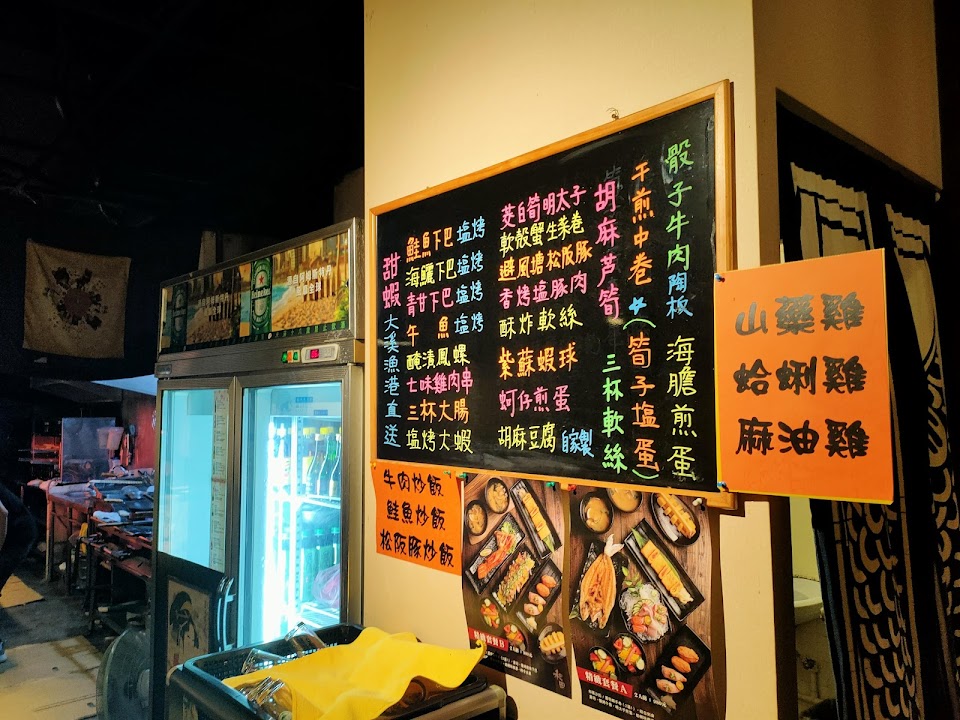 甜蝦
大溪漁港直送
鮭魚下巴塩烤
海鱺下巴塩烤
青甘下巴塩烤
午魚塩烤
醃漬鳳螺
七味雞肉串
三杯大腸
塩烤大蝦
茭白筍明太子
軟殼蟹生菜卷
避風塘松阪豚
香烤塩豚肉
酥炸軟絲
紫蘇蝦球
蚵仔煎蛋
胡麻豆腐 自家製
胡麻芦筍
三杯軟絲
干煎中卷☆(筍子塩蛋)
骰子牛肉陶板
海膽煎蛋
山藥雞
蛤蜊雞
麻油雞
牛肉炒飯
鮭魚炒飯
松阪豚炒飯
精緻套餐B
精緻套餐A
Heineken